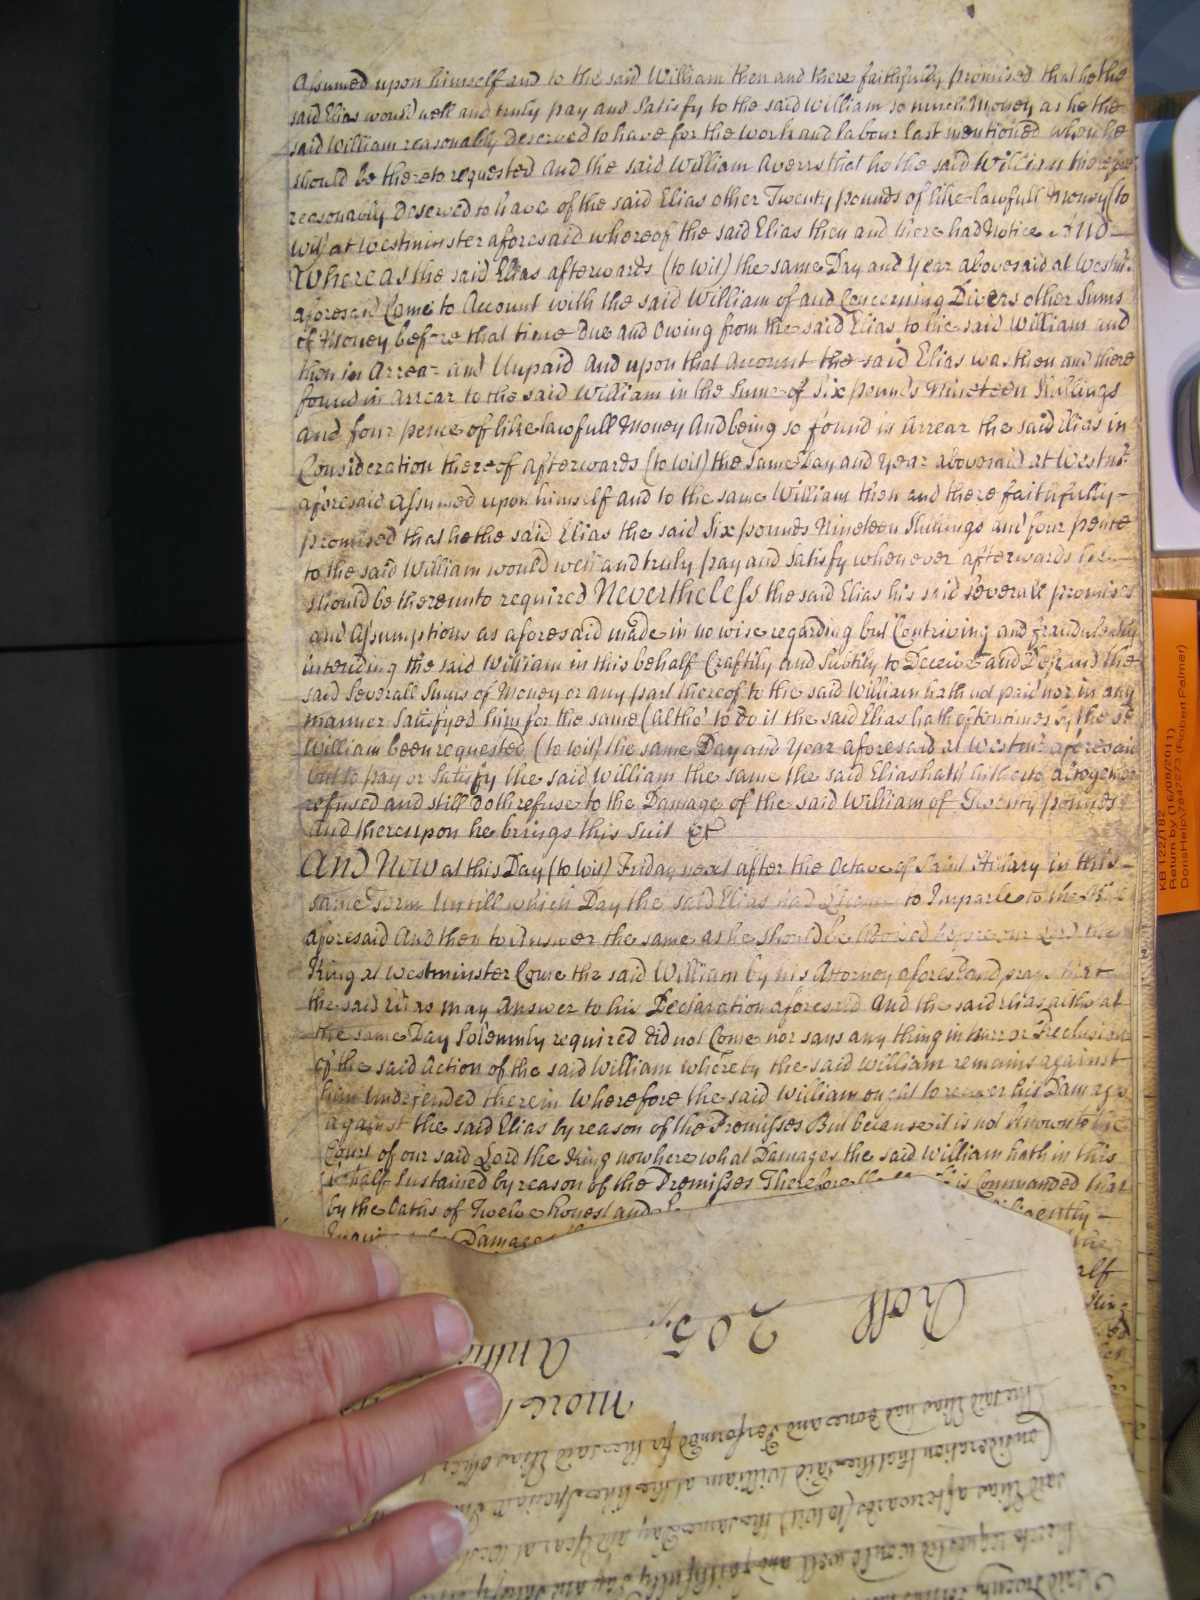 Assumed upon himself and to the said William then and there faithfully promised that he the
said Elias would well and truly pay and Satisfy to the said William so much Money as he the
said William reasonably Deserved to have for the Work and labour last mentioned when he
should be thereto requested And the said William Averrs that he the said William therefore
reasonably Deserved to have of the said Elias other Twenty pounds of like lawfull Money (to
wit) at Westminster aforesaid whereof the said Elias then and there had Notice And
Whereas the said Elias afterwards (to wit) the same Day and Year abovesaid at Westmr.
aforesaid Came to Account with the said William of and Concerning Divers other Sums
of Money before that time Due and Owing from the said Elias to the said William and
then in Arrear and Unpaid And upon that Account the said Elias was then and there
found in Arrear to the said William in the Sume of Six pounds Nineteen Shillings
and four pence of like lawfull Money And being so found in Arrear the said Elias in
Consideration thereof afterwards (to wit) the same Day and Year abovesaid at Westmr.
aforesaid Assumed upon himself and to the same William then and there faithfully
promised that he the said Elias the said Six pounds Nineteen Shillings and four pence
to the said William would well and truly pay and Satisfy whenever afterwards he
should be thereunto required Nevertheless the said Elias his said severall promises
and Assumptions as aforesaid made in no wise regarding but Contriving and fraudulently
intending the said William in this behalf Craftily and Subtily to Deceive and Defraud the
said Severall Sums of Money or any part thereof to the said William hath not paid nor in any
manner Satisfyed him for the same (altho' to do it the said Elias hath oftentimes by the sd
William been requested (to wit) the same Day and Year aforesaid at Westmr. aforesaid
but to pay or Satisfy the said William the same the said Elias hath hitherto altogether
refused and still doth refuse to the Damage of the said William of Twenty pounds
And thereupon he brings this Suit &c
And Now at this Day (to wit) Friday next after the Octave of Saint Hilary in this
same Term Untill which Day the said Elias had to Imparle to the Bill
aforesaid And then to Answer the same as he should be Advised before our Lord the
King at Westminster Come the said William by his Attorney aforesaid and prays that
the said Elias may Answer to his Declaration aforesaid And the said Elias altho' at
the same Day Solemnly required did not Come nor says any thing in barr or Preclusion
of the said Action of the said William whereby the said William remains against
him Undefended therein Wherefore the said William ought to recover his Damages
against the said Elias by reason of the Premisses But because it is not known to the
Court of our said Lord the King now here what Damages the said William hath in this
behalf Sustained by reason of the Premisses Therefore is Commanded that
by the Oaths of Twelve honest and diligently
Damages the
half
Roll 205
more
the said Elias had done and performed for the said Elias other
Consideration that the said William at the like Special
said Elias afterwards (to wit) the same Day and Year at
thereto requested would well and faithfully pay and Satisfy
said Twenty
KB 122/182
Return by (16/08/2011)
DorisHelp\7847273 (Robert Palmer)